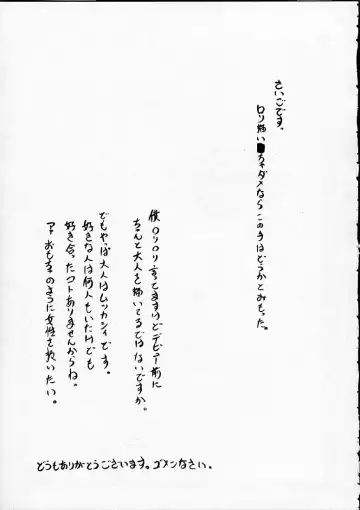 さいごです。
ロリ描い ちゃダメならこの手はどうかとおもった。
僕ロリロリ言ってますけどデビュー前に
ちゃんと大人を描いてるではないですか。
でもやっぱ大人はムツカシイです。
好きな人は何人もいたけども
好き合ったコトありませんからね。
アァおもちゃのように女性を扱いたい。
どうもありがとうございます。ゴメンなさい。